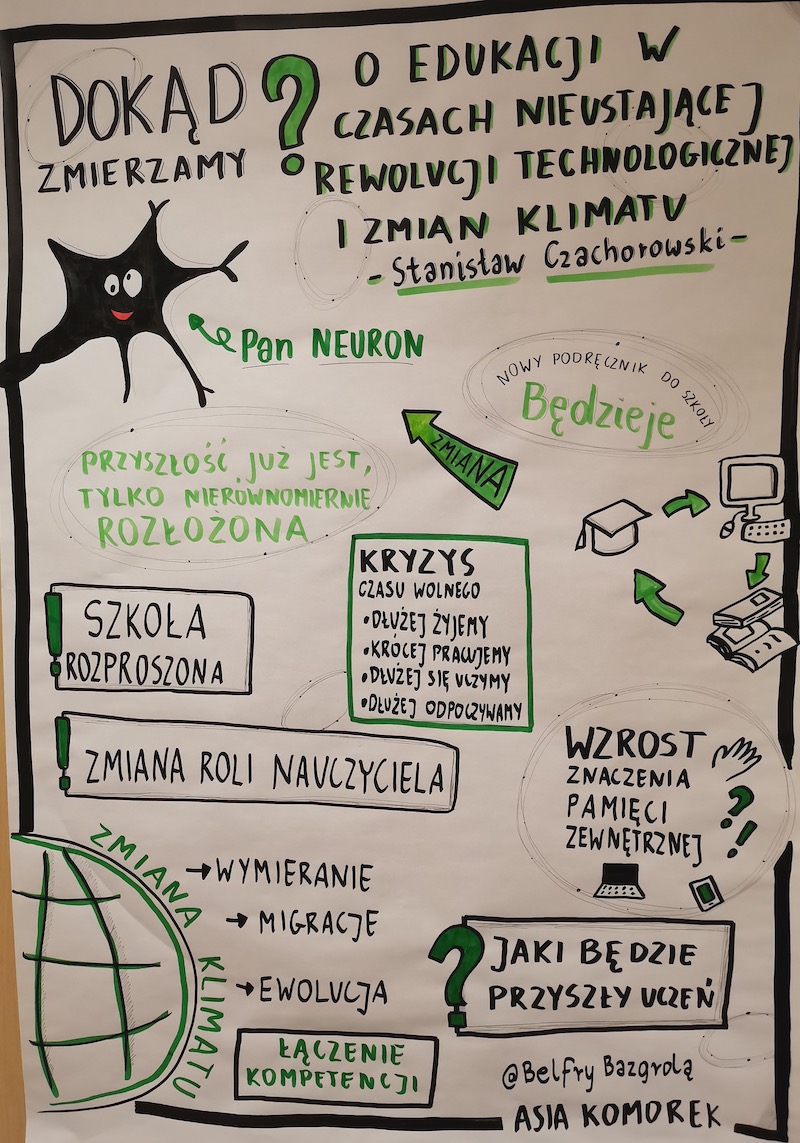 DOKĄD
ZMIERZAMY
?
O EDUKACJI W
CZASACH NIEUSTAJĄCEJ
REWOLUCJI TECHNOLOGICZNEJ
I ZMIAN KLIMATU
- Stanisław Czachorowski -
Pan NEURON
NOWY PODRĘCZNIK DO SZKOŁY
Będzieje
ZMIANA
PRZYSZŁOŚĆ JUŻ JEST,
TYLKO NIERÓWNOMIERNIE
ROZŁOŻONA
KRYZYS
CZASU WOLNEGO
•DŁUŻEJ ŻYJEMY
•KRÓCEJ PRACUJEMY
•DŁUŻEJ SIĘ UCZYMY
•DŁUŻEJ ODPOCZYWAMY
! SZKOŁA
ROZPROSZONA
! ZMIANA ROLI NAUCZYCIELA
WZROST
ZNACZENIA
PAMIĘCI
ZEWNĘTRZNEJ
?
!
ZMIANA KLIMATU
→WYMIERANIE
→ MIGRACJE
→EWOLUCJA
ŁĄCZENIE
KOMPETENCJI
? JAKI BĘDZIE
PRZYSZŁY UCZEŃ
@Belfry Bazgrolą
ASIA KOMOREK